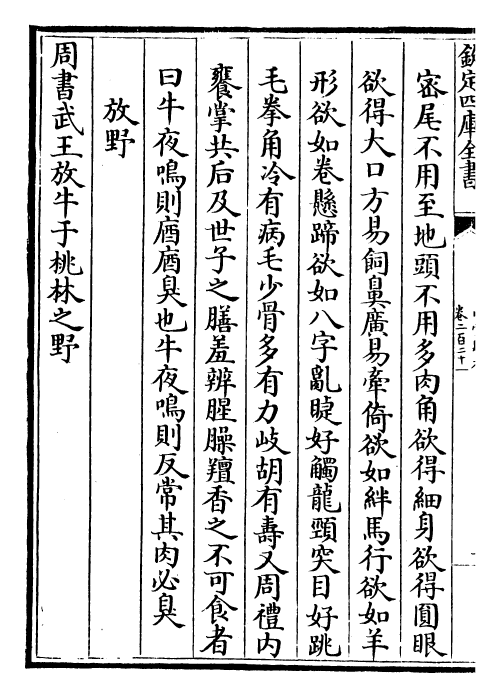 欽定四庫全書
卷二百二十一
密尾不用至地頭不用多肉角欲得細身欲得圓眼
欲得大口方易飼鼻廣易牽倚欲如絆馬行欲如羊
形欲如卷懸蹄欲如八字亂睫好觸龍頸突目好跳
毛拳角冷有病毛少骨多有力岐胡有壽又周禮内
饔掌共后及世子之膳羞辨腥臊羶香之不可食者
曰牛夜鳴則庮庮臭也牛夜鳴則反常其肉必臭
放野
周書武王放牛于桃林之野